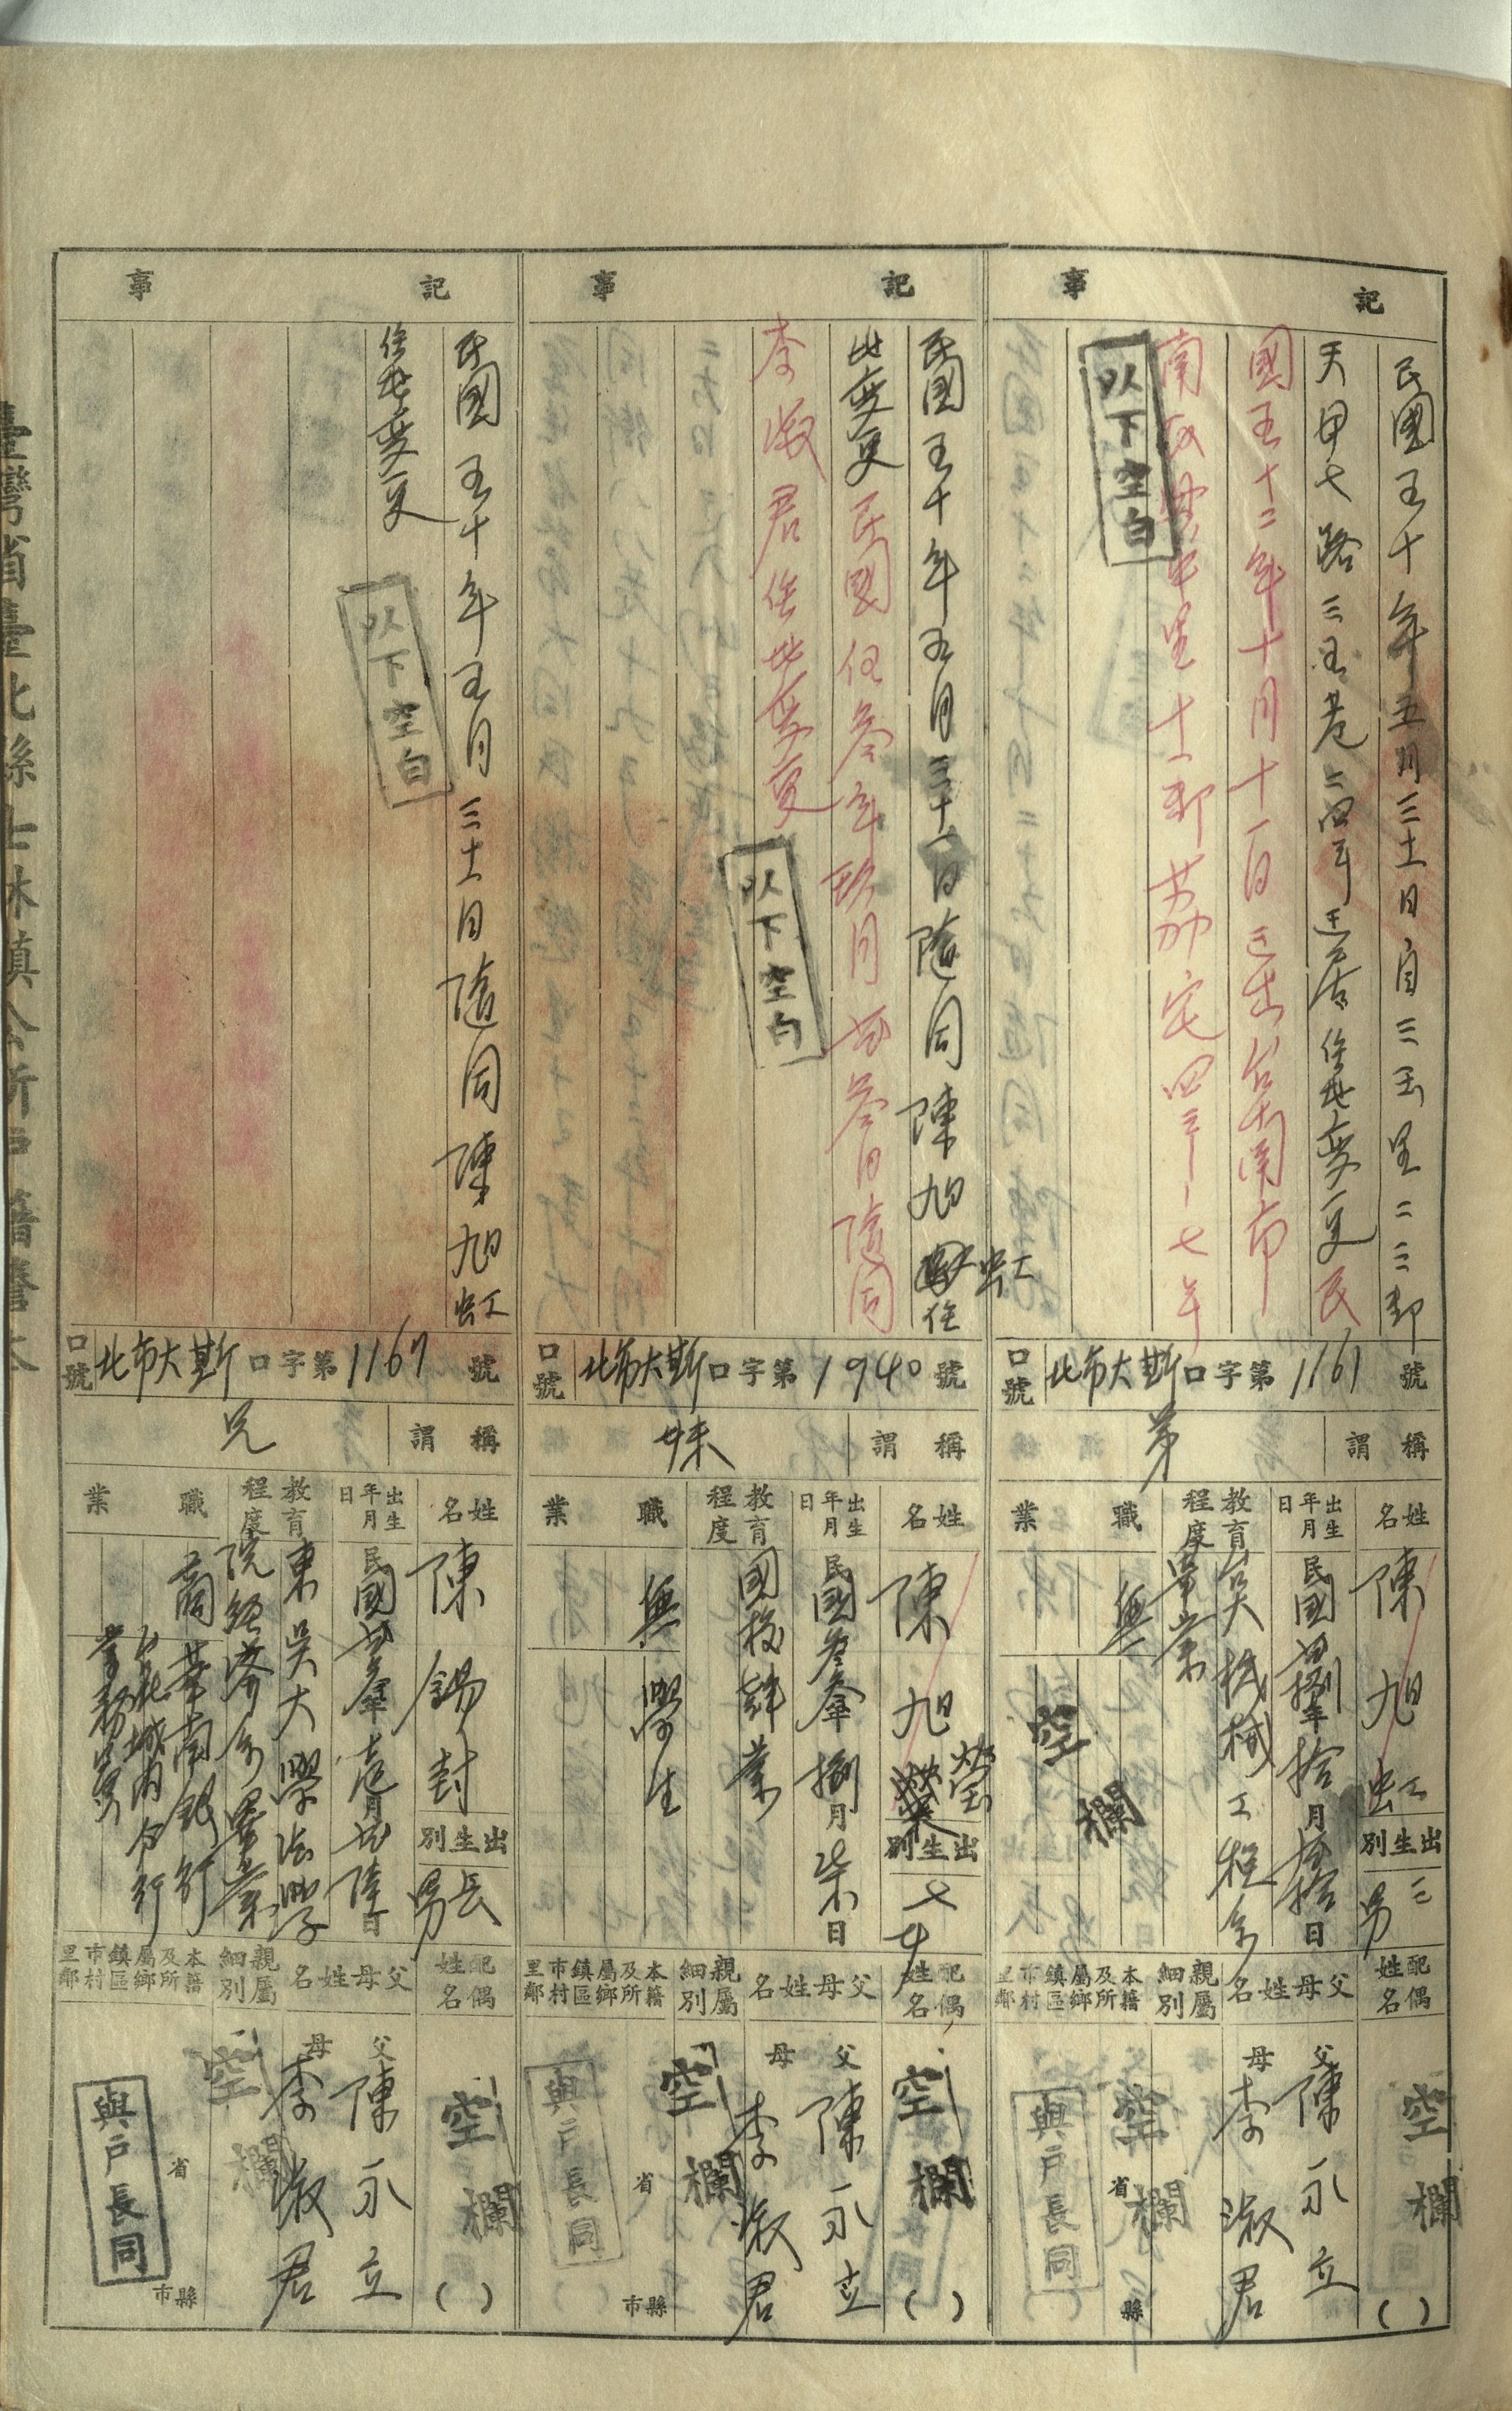 記事
民國五十年五月三十一日自三玉里二三鄰
天母七路三五巷二四弄遷居住址變更民
國五十二年十月十一日遷出台南市
南區
里十一鄰
宅四三一七年
以下空白
口號 北市大斯口字第1161號
稱謂 弟
姓名 陳旭虹
出生別 三男
出生年月日 民國 年拾月 拾日
教育程度 機械工程系
畢業
職業 無
空欄
配偶姓名 空欄
父母姓名 父 陳永立
母 李淑君
親屬細別 空欄
本籍及所屬鄉鎮區市村里鄰 省 縣
與戶長同
記事
民國五十年五月三十一日隨同陳旭虹住
址變更民國伍叁年玖月廿叁日隨同
李淑君住址變更
以下空白
口號 北市大斯口字第1940號
稱謂 妹
姓名 陳旭瑩
出生別 女
出生年月日 民國叁 年捌月柒日
教育程度 國校肄業
職業 無
學生
配偶姓名 空欄
父母姓名 父 陳永立
母 李淑君
親屬細別 空欄
本籍及所屬鄉鎮區市村里鄰 省 縣市
與戶長同
記事
民國五十年五月三十一日隨同陳旭虹
住址變更
以下空白
口號 北市大斯口字第1167號
稱謂 兄
姓名 陳錫封
出生別 長男
出生年月日 民國廿 年壹月廿陸日
教育程度 東吳大學法學
院經濟系畢業
職業 商 華南銀行
台北城內分行
業務員
配偶姓名 空欄
父母姓名 父 陳永立
母 李淑君
親屬細別 空欄
本籍及所屬鄉鎮區市村里鄰 省 縣市
與戶長同
臺灣省臺北縣士林鎮公所戶籍謄本